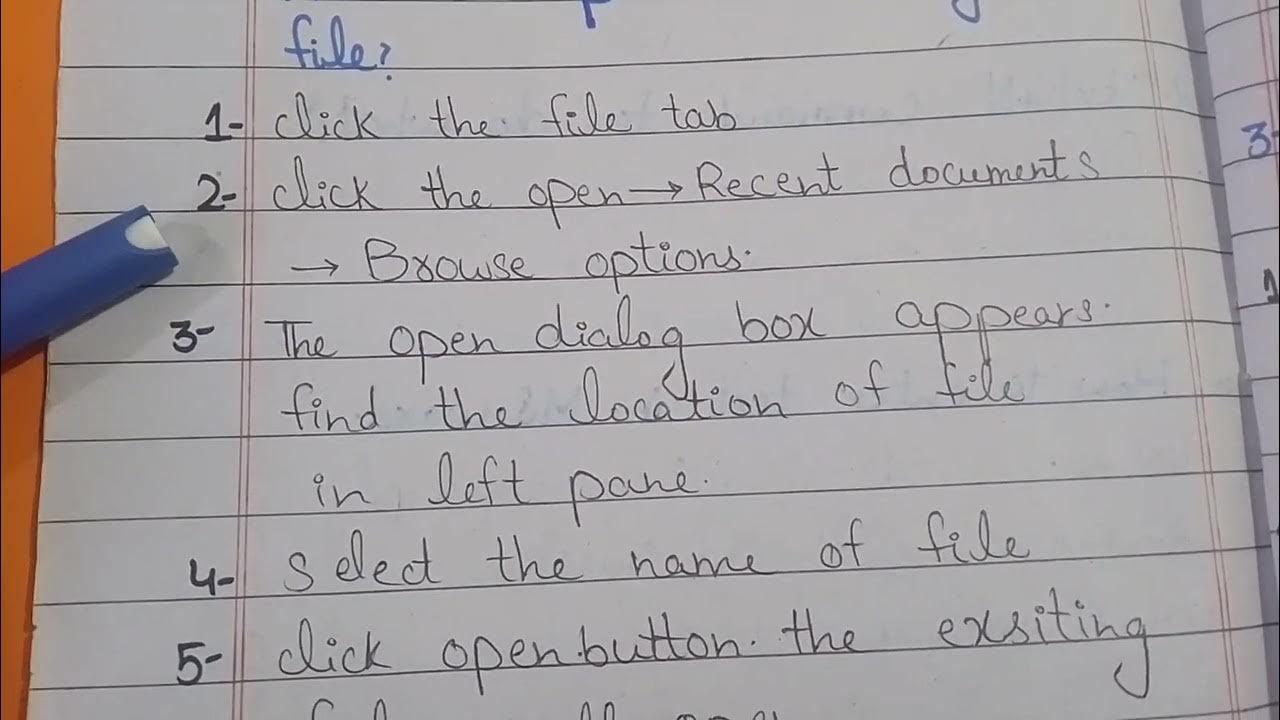 file?
1- click the file tab
2- click the open → Recent documents
→ Browse options.
3- The open dialog box appears.
find the location of file
in left pane.
4- select the name of file
5- click open button. the exsiting
3
1